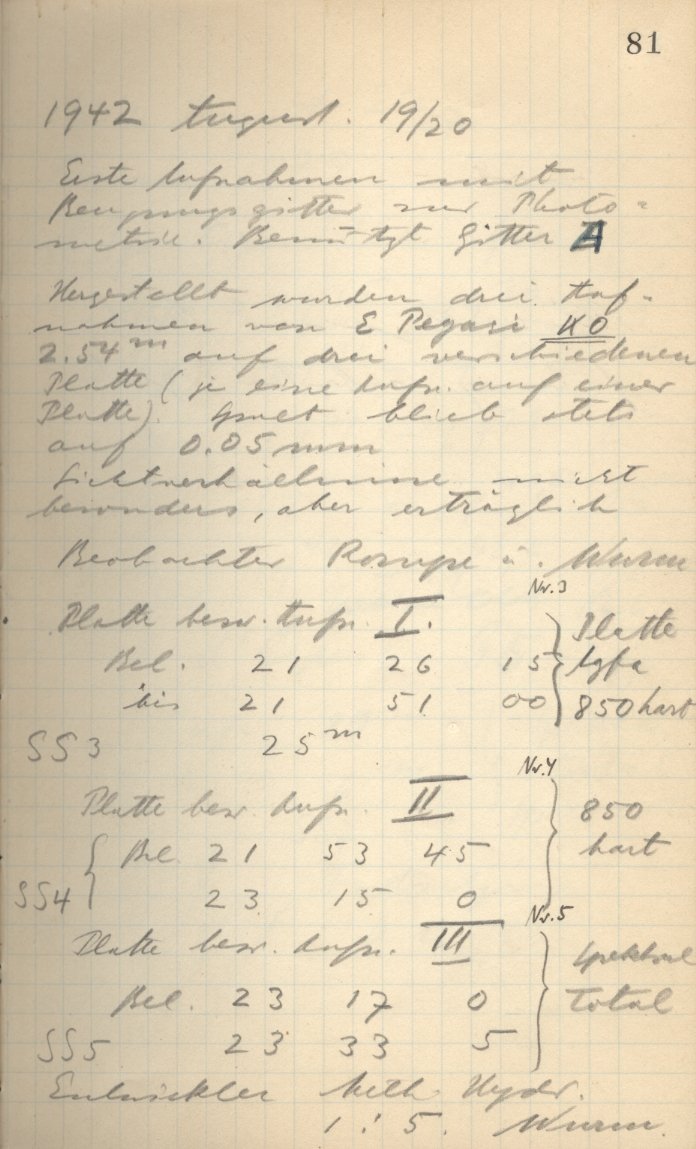 81
1942 August. 19/20
Erste Aufnahmen mit
Beugungsgitter zur Photo-
metrie. Benützt Gitter
Hergestellt wurden drei Auf-
nahmen von ε Pegasi K0
2.54m auf drei verschiedenen
Platte (je eine Aufn. auf einer
Platte). Spalt blieb stets
auf 0.05 mm
Lichtverhältnisse nicht
besonders, aber erträglich
Beobachter Rompe u. Wurm
Nr. 3
Platte bezw. Aufn. I. Platte
Bel. 21 26 15 Agfa
bis 21 51 00 850 hart
SS3 25m
Nr. 4
Platte bezw. Aufn. II 850
Bel. 21 53 45 hart
SS4 23 15 0
Nr. 5
Platte bezw. Aufn. III Spektral
Bel. 23 17 0 Total
SS5 23 33 5
Entwickler Meth. Hydr.
1 : 5. Wurm.